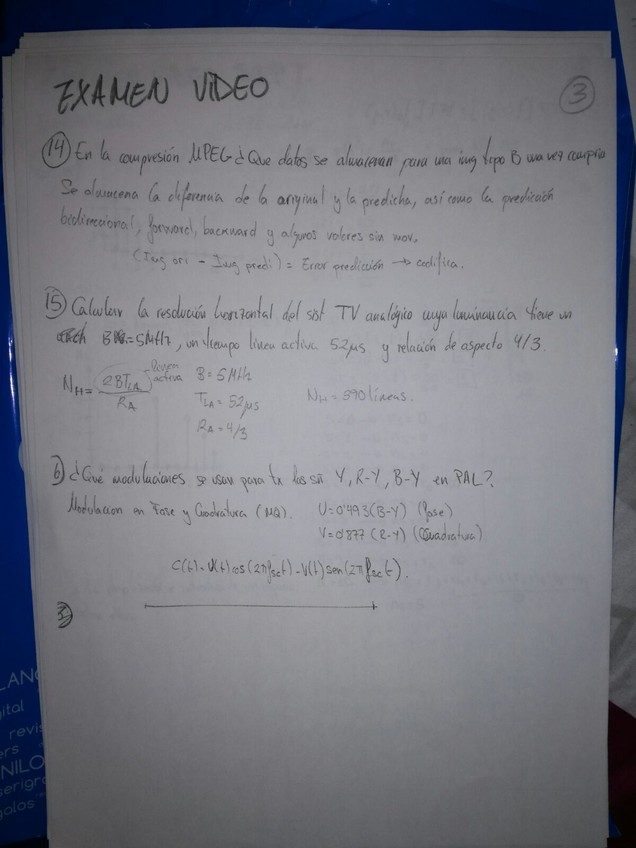 EXAMEN VIDEO
3
14 En la compresión MPEG ¿Que datos se almacenan para una img tipo B una vez
Se almacena la diferencia de la original y la predicha, así como la predicción
bidireccional, forward, backward y algunos valores sin mov.
(Img ori - Img predi) = Error predicción → codifica.
15 Calcular la resolución horizontal del sist TV analógico cuya luminancia tiene un
B = 5MHz, un tiempo linea activa 52μs y relación de aspecto 4/3.
N_H = 2BT_LA / R_A linea activa B = 5MHz
T_LA = 52μs N_H = 390 líneas.
R_A = 4/3
6) ¿Qué modulaciones se usan para tx las sñ Y, R-Y, B-Y en PAL?
Modulacion en Fase y Cuadratura (MQ). U=0'493(B-Y) (fase)
V=0'877(R-Y) (Cuadratura)
C(t) - U(t)cos(2πfsct) - V(t)sen(2πfsct).
LANC
gital
revis
ers
NILO
serigra
galos